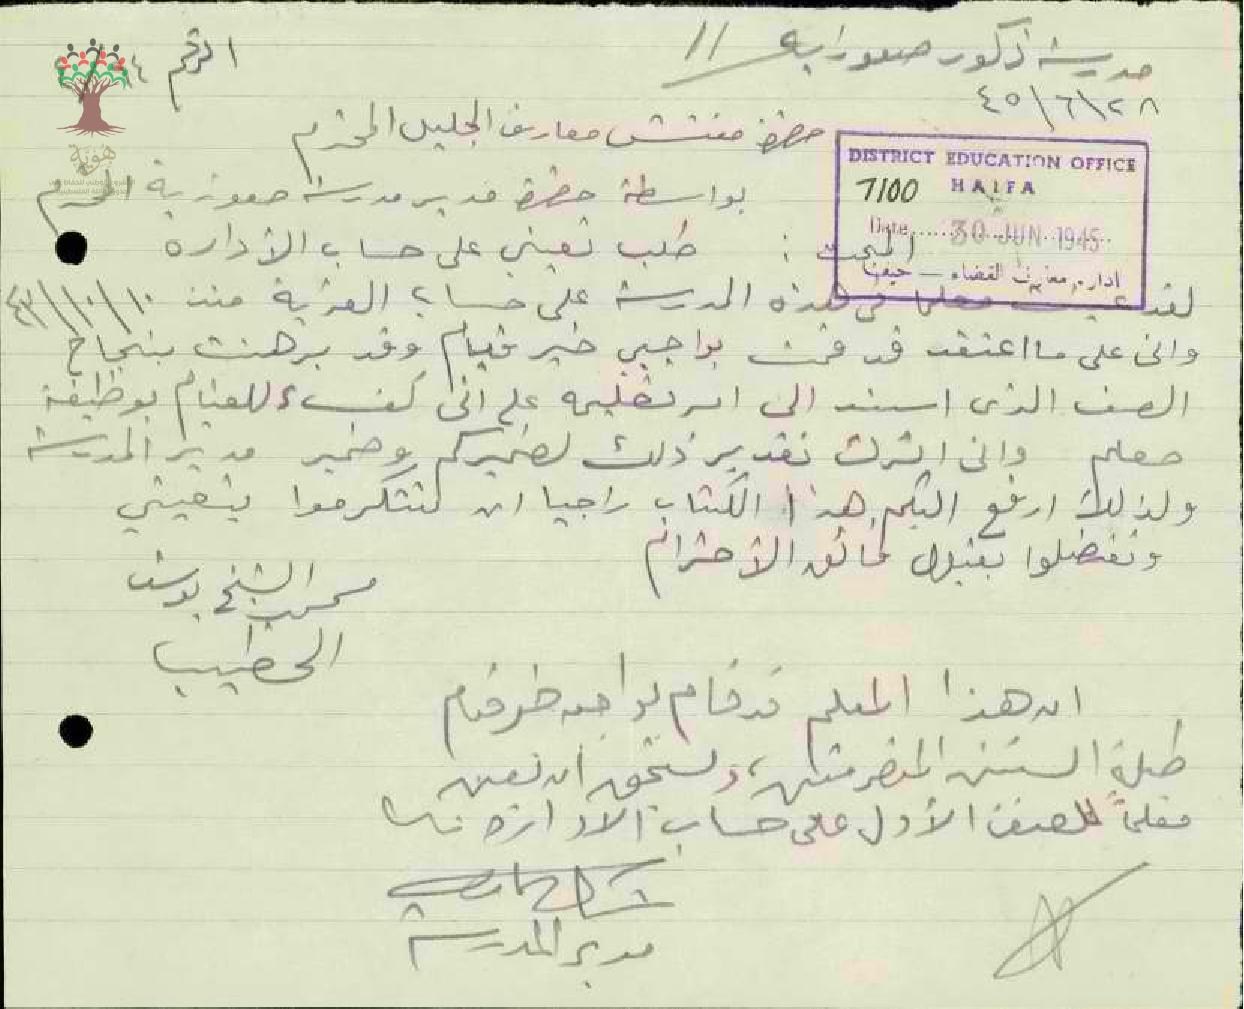 مدرسة ذكور صفورية //
الرقم ٤
٢٨/٦/٤٥
حضرة مفتش معارف الجليل المحترم
بواسطة حضرة مدير مدرسة صفورية المحترم
DISTRICT EDUCATION OFFICE
7100 HAIFA
Date 30 JUN 1945
ادارة معارف القضاء — حيفا
المبحث : طلب تعيني على حساب الأدارة
لقد عينت معلما في هذه المدرسة على حساب القرية منذ ١٠/١٠/٤٣
وانى على ما اعتقد قد قمت بواجبي خير قيام وقد برهنت بنجاح
الصف الذى اسند الى امر تعليمه على انى كفء للقيام بوظيفة
معلم وانى اترك تقدير ذلك لضميركم وضمير مدير المدرسة
ولذلك ارفع اليكم هذا الكتاب راجيا ان تتكرموا بتعييني
وتفضلوا بقبول فائق الأحترام
الشيخ يوسف
الخطيب
ان هذا المعلم قد قام بواجبه خير قيام
طيلة السنتين المنصرمتين، ويستحق ان يعين
معلماً للصف الأول على حساب الادارة
مدير المدرسة